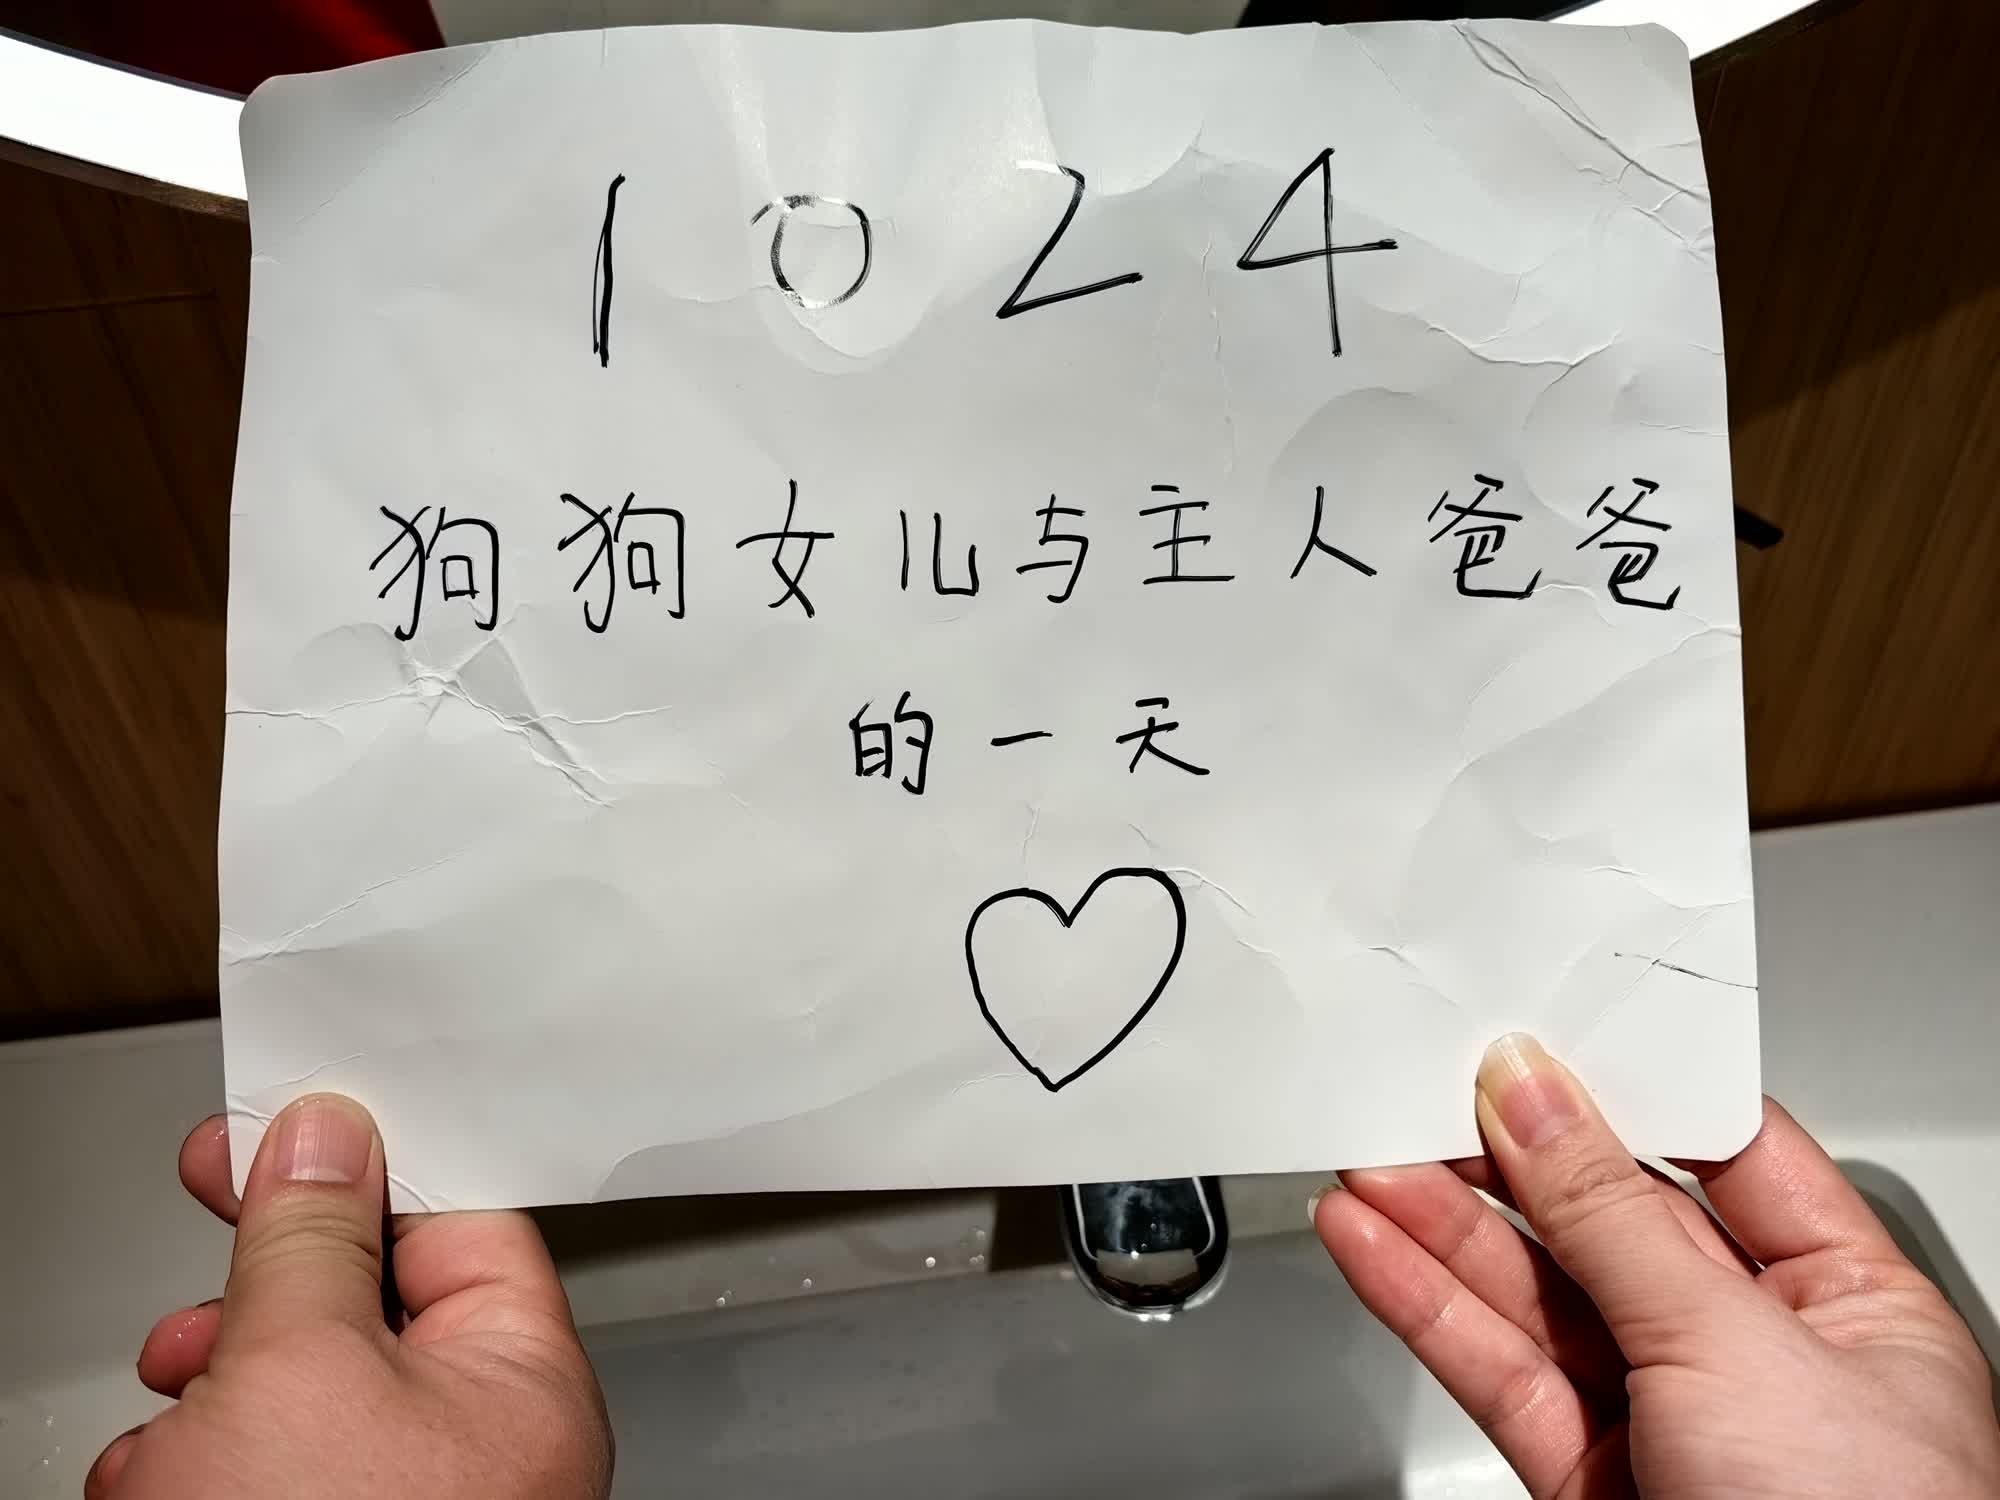 1024
狗狗女儿与主人爸爸
的一天